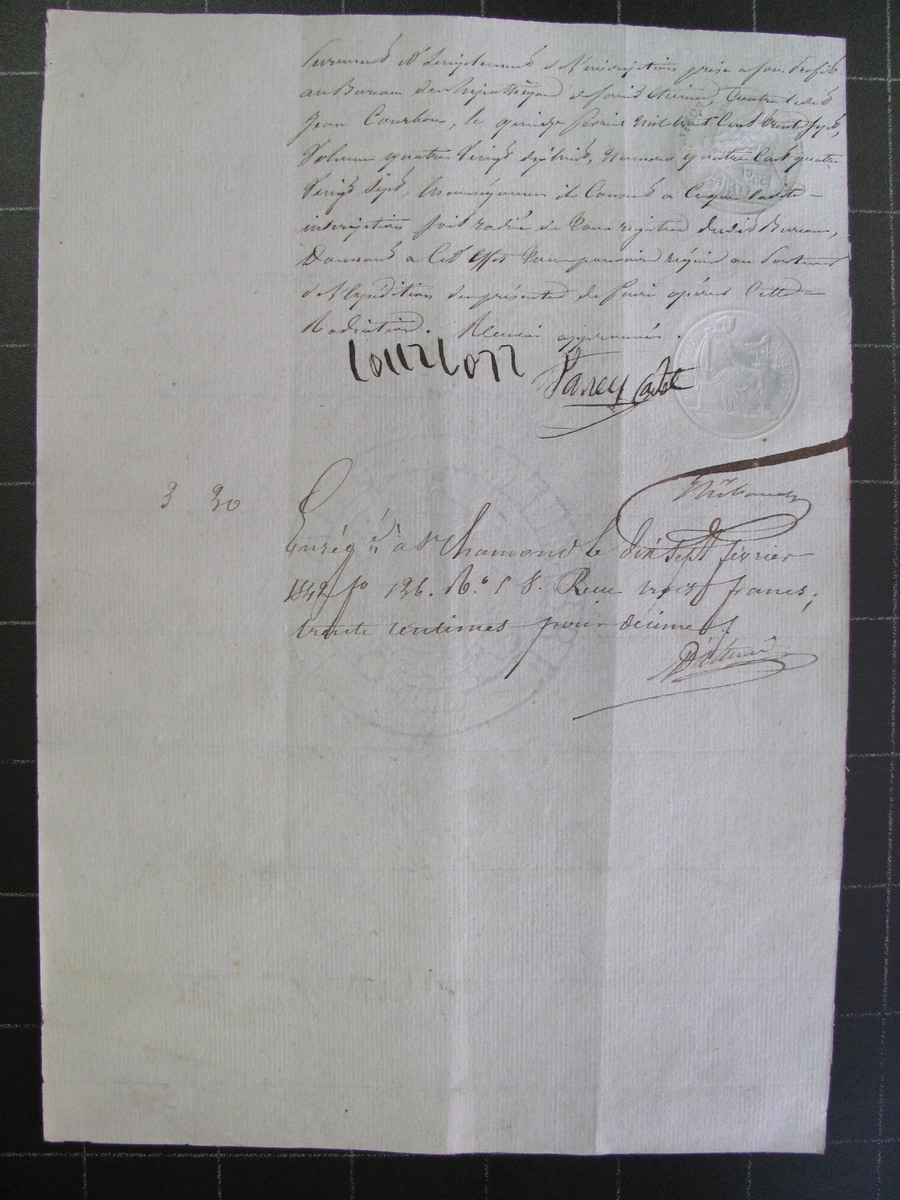 purement et simplement de l'inscription prise a son profit
au Bureau des hypothèques de Saint Etienne, Contre ledit
Jean Courbon, le quinze février mil huit Cent trente sept,
Volume quatre Vingt Numero quatre Cent quatre
Vingt Sept, et Consent a Ceque ladite
inscription soit radiée de tous registres dudit Bureau,
Donnant a Cet effet tout pouvoir requis au Porteur
de l'expédition des présentes de faire opérer Cette
Radiation.
courbon
cadet
3 30
Enrég à St Chamond le dix sept fevrier
1842 fo 136. Ro. C 8. Reçu trois francs,
trente centimes pour décimes.